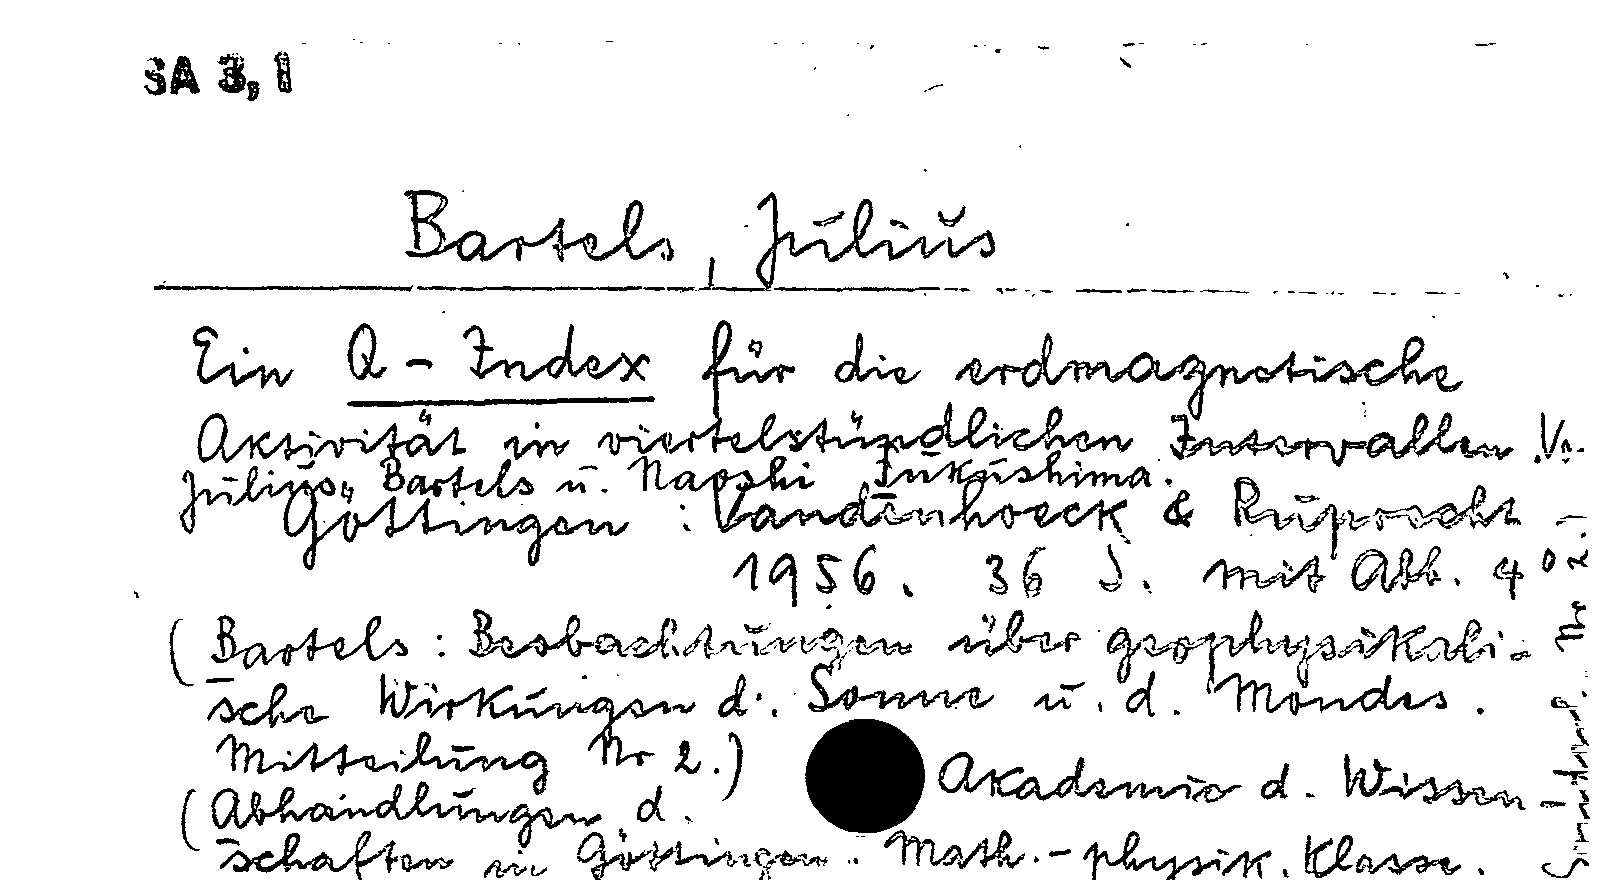 SA 3,1
Bartels, Julius
Ein Q-Index für die erdmagnetische
Aktivität in viertelstündlichen Intervallen. Vn.
Julius Bartels u. Naoshi Fukushima.
Göttingen: Vandenhoeck & Ruprecht
1956. 36 S. mit Abb. 4°
(Bartels: Beobachtungen über geophysikali-
sche Wirkungen d. Sonne u. d. Mondes.
Mitteilung Nr 2.)
(Abhandlungen d. Akademie d. Wissen-
schaften in Göttingen. Math.-physik. Klasse.
Nr 2.)